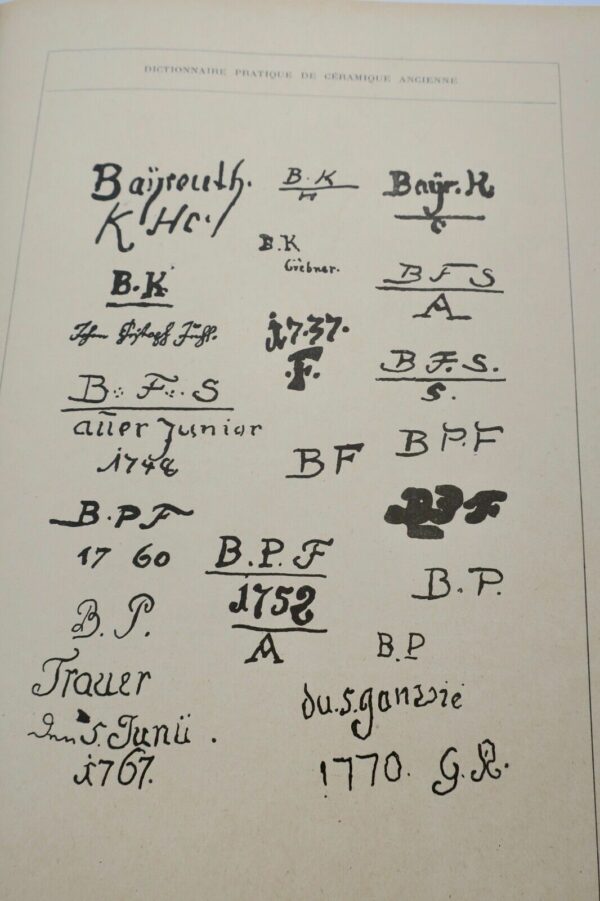 DICTIONNAIRE PRATIQUE DE CÉRAMIQUE ANCIENNE
Baÿreuth.
K Hc.
B.K
B.K
H
B.K
Grebner.
Bayr. K
c
B F S
A
1737.
.F.
B F. S.
S.
B. F. S
auer junior
1748
B F
B P. F
B.P F
17 60
B. P. F
1752
A
B. P.
B. P.
B. P
Trauer
5. Junü.
1767.
du.s.
1770. G. R.